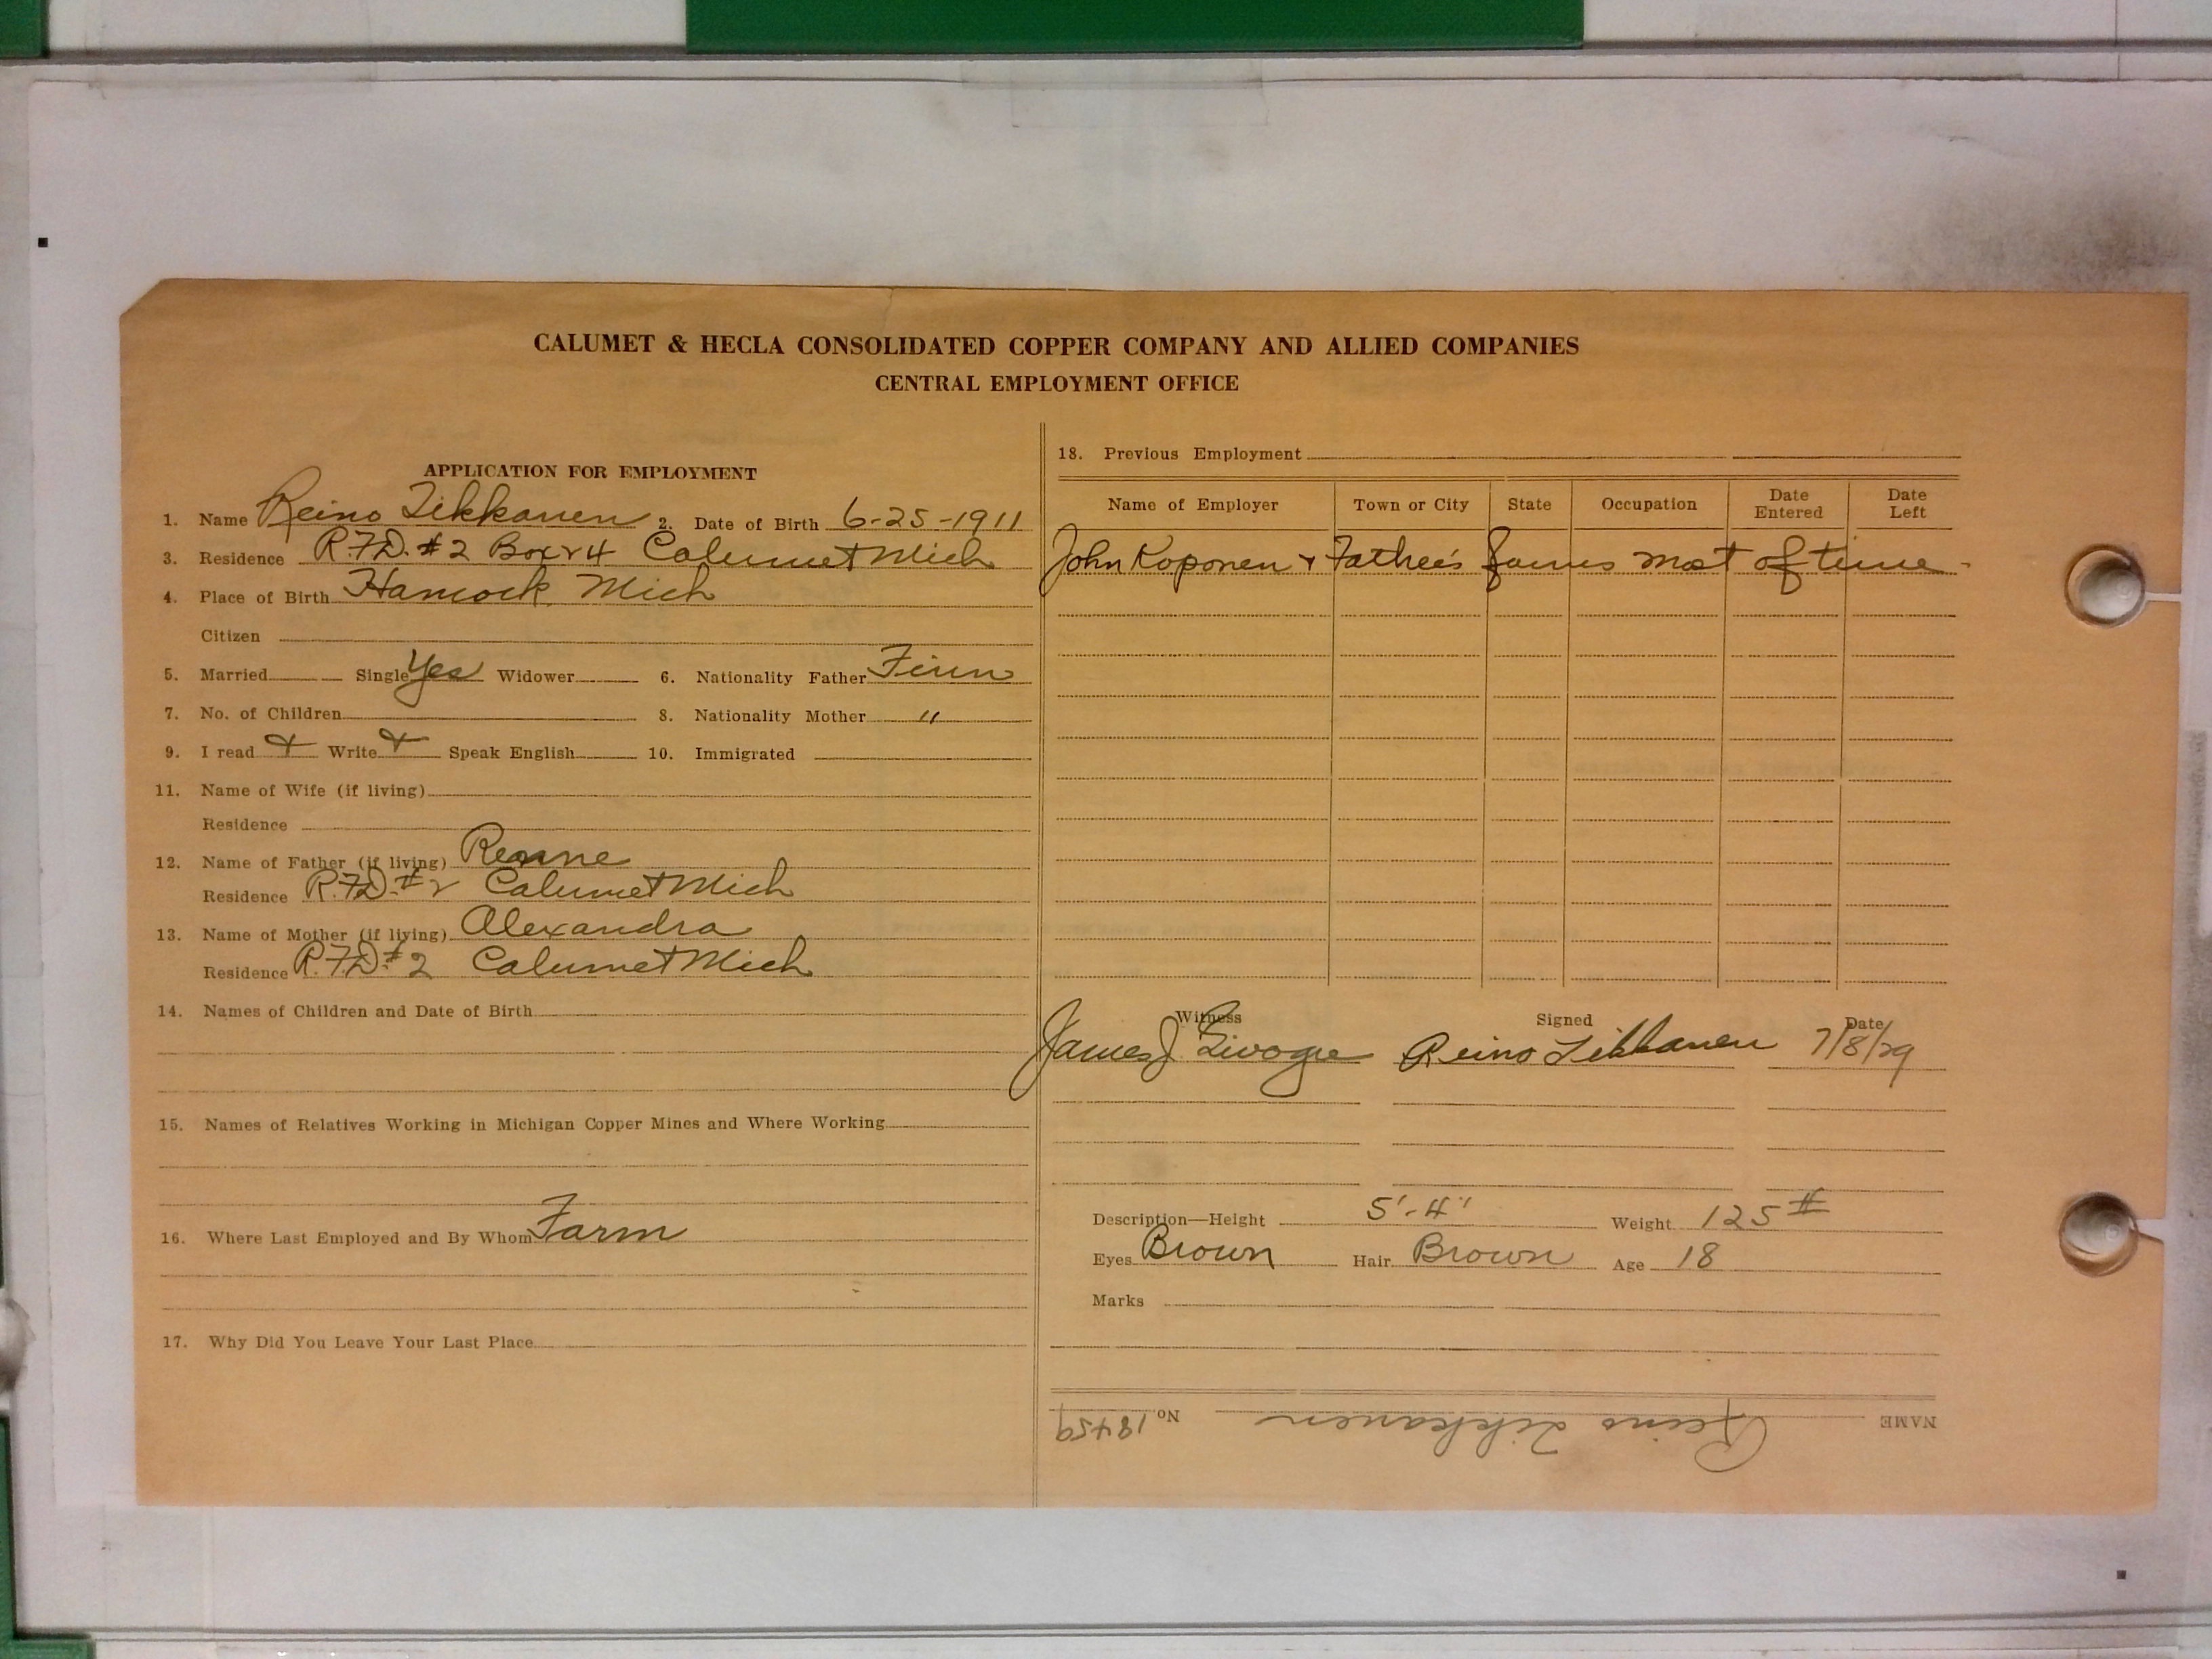 CALUMET & HECLA CONSOLIDATED COPPER COMPANY AND ALLIED COMPANIES
CENTRAL EMPLOYMENT OFFICE
APPLICATION FOR EMPLOYMENT
1. Name Reino Tikkanen 2. Date of Birth 6-25-1911
3. Residence R.F.D. #2 Box 24 Calumet Mich
4. Place of Birth Hancock Mich
Citizen
5. Married Single Yes Widower 6. Nationality Father Finn
7. No. of Children 8. Nationality Mother "
9. I read + Write + Speak English 10. Immigrated
11. Name of Wife (if living)
Residence
12. Name of Father (if living)
Residence R.F.D. #2 Calumet Mich
13. Name of Mother (if living) Alexandra
Residence R.F.D. #2 Calumet Mich
14. Names of Children and Date of Birth
15. Names of Relatives Working in Michigan Copper Mines and Where Working
16. Where Last Employed and By Whom Farm
17. Why Did You Leave Your Last Place
18. Previous Employment
Name of Employer Town or City State Occupation Date Entered Date Left
John Koponen + Father's farms most of time
Witness Signed Date
James J Reino Tikkanen 7/8/29
Description—Height 5'-4" Weight 125#
Eyes Brown Hair Brown Age 18
Marks
NAME Reino Tikkanen No. 18459